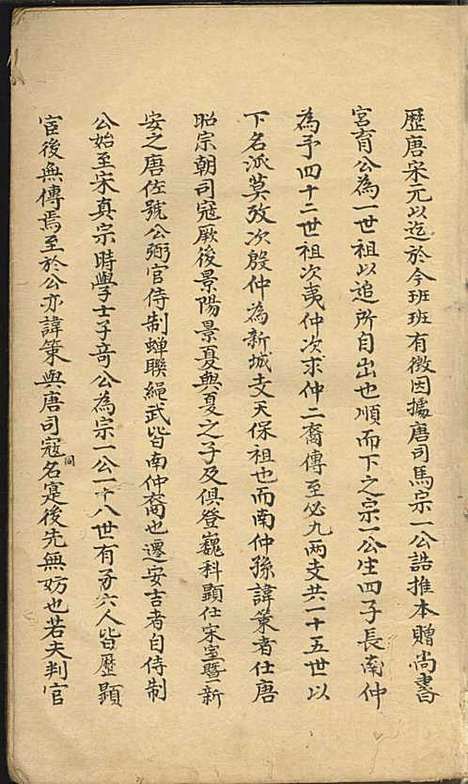 歷唐宋元以迄於今班班有徵因據唐司馬宗一公誥推本贈尚書
宮育公為一世祖以追所自出也順而下之宗一公生四子長南仲
為予四十二世祖次夷仲次求仲二裔傳至必九兩支共一十五世以
下名派莫攷次殷仲為新城支天保祖也而南仲孫諱策者仕唐
昭宗朝司寇厥後景陽景夏與夏之子及俱登巍科顯仕宋室暨新
安之唐佐號公弼官侍制蟬聯繩武皆南仲裔也遷安吉者自侍制
公始至宋真宗時學士子奇公為宗一公一十八世有子六人皆歷顯
宦後無傳焉至於公亦諱策與唐司寇名同寔後先無妨也若夫判官